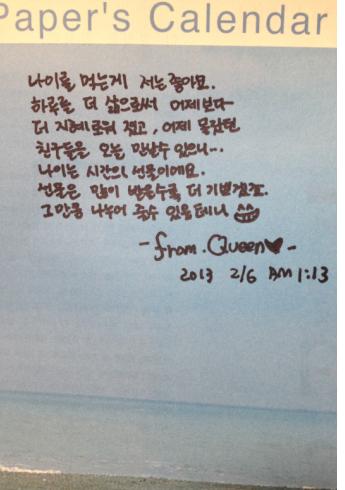 Paper's Calendar
나이를 먹는게 저는 좋아요.
하루를 더 삶으로써 어제보다
더 지혜로워 졌고, 어제 몰랐던
친구들을 오늘 만날수 있으니...
나이는 시간의 선물이에요.
선물은 많이 받을수록 더 기쁘겠죠.
그만큼 나누어 줄수 있을테니
-from. Queen♥-
2013 2/6 AM 1:13